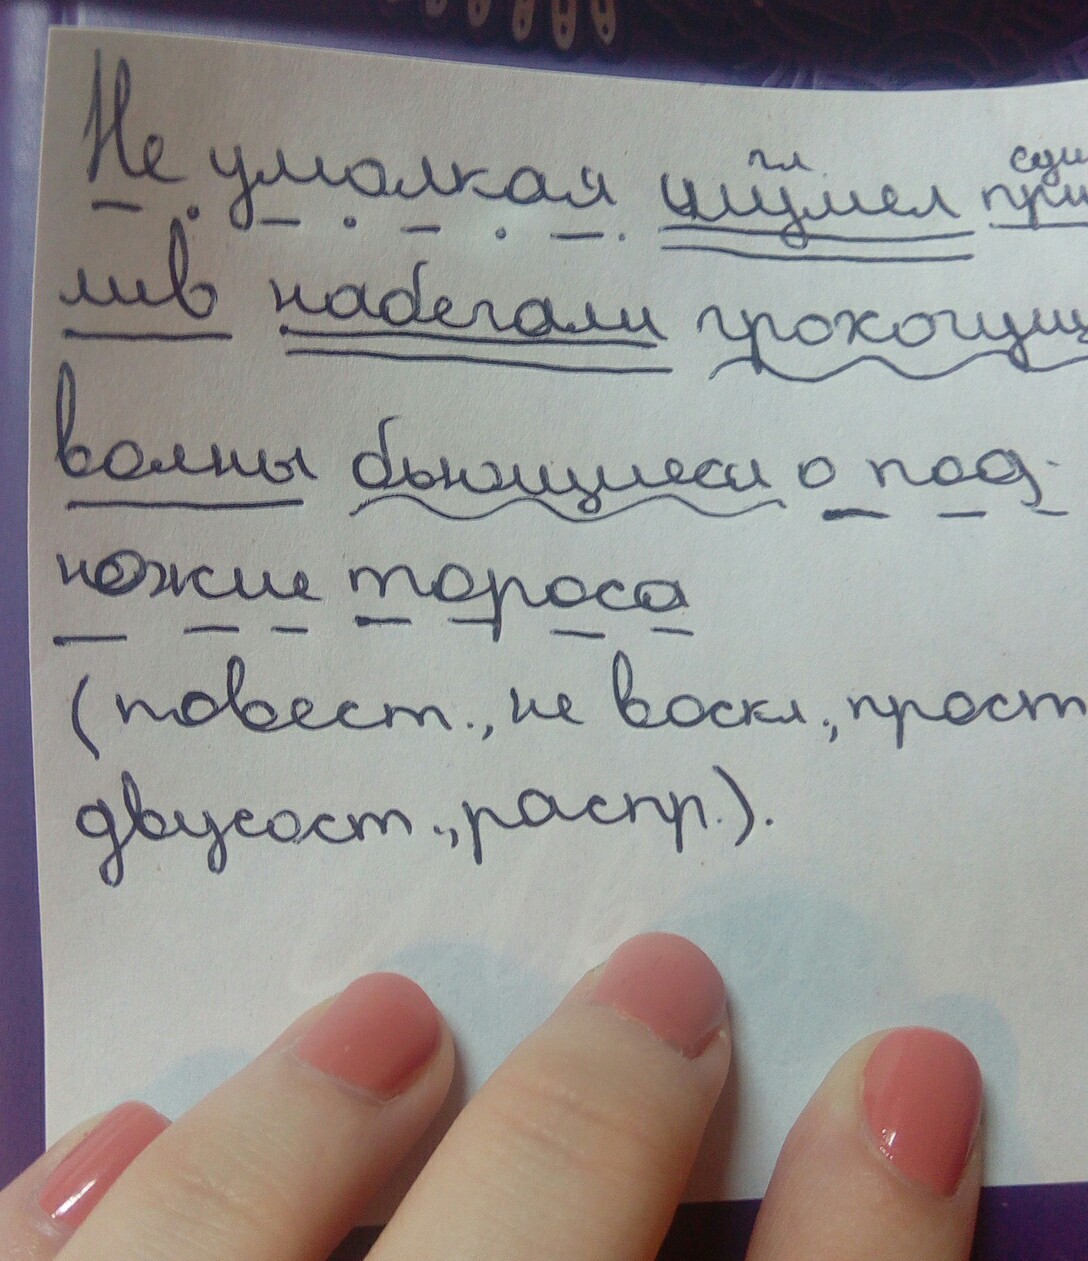 гл сущ
Не умолкая шумел при
лив набегали грохочущ
волны бьющиеся о под-
ножие тороса
(повест., не воскл., прост
двусост., распр.).